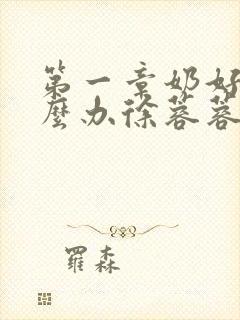 第一章奶好
麼办徐蓉蓉
羅森